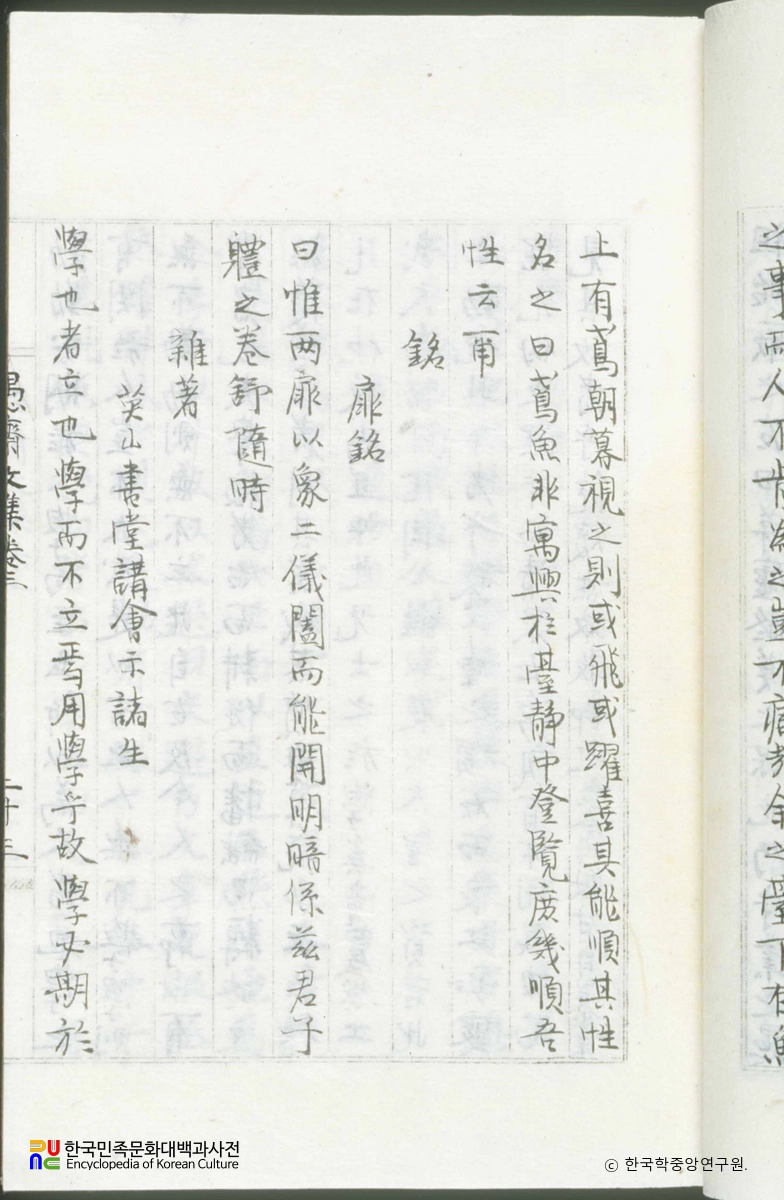 之事而人不
上有鳶朝暮視之則或飛或躍喜其能順其性
名之曰鳶魚非寓興於臺靜中登覧庶幾順吾
性云甫
銘
扉銘
曰惟两扉以象二儀闔而能開明暗係茲君子
軆之卷舒隨時
雜著
英山書堂講會示諸生
學也者立也學而不立焉用學乎故學必期於
愚齋文集卷三
二十三
한국민족문화대백과사전
Encyclopedia of Korean Culture
ⓒ 한국학중앙연구원.